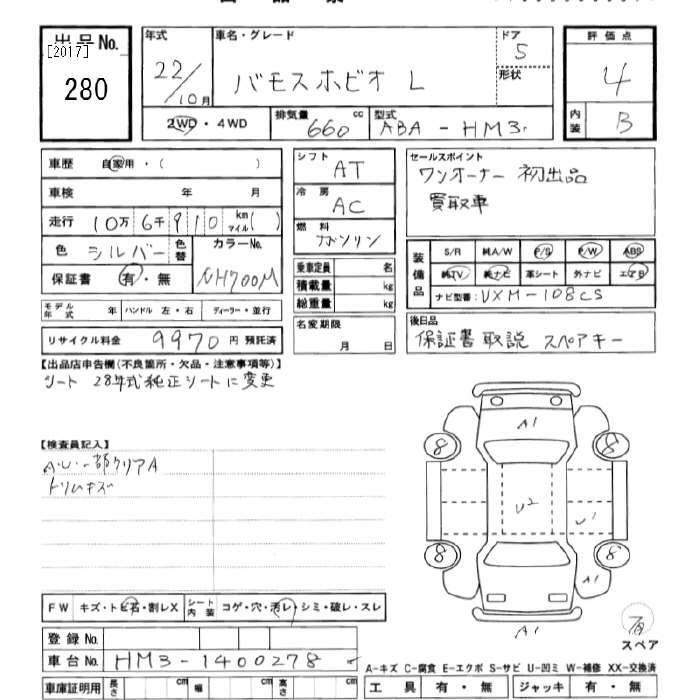 出品No.
[2017]
280
年式
22/10月
車名・グレード
バモスホビオ L
ドア
5
形状
評価点
4
内装
B
2WD・4WD
排気量
660 cc
型式
ABA-HM3
車歴 自家用・( )
車検 年 月
走行 10万 6千 910 km マイル( )
色 シルバー 色替
カラーNo.
NH700M
保証書 有・無
モデル年式 年 ハンドル 左・右 ディーラー・並行
リサイクル料金 9970 円 預託済
シフト
AT
冷房
AC
燃料
ガソリン
乗車定員 名
積載量 kg
総重量 kg
名変期限
月 日
セールスポイント
ワンオーナー 初出品
買取車
装備品
S/R 純A/W P/S P/W ABS
純TV 純ナビ 革シート 外ナビ エアB
ナビ型番: VXM-108CS
後日品
保証書 取説 スペアキー
【出品店申告欄(不良箇所・欠品・注意事項等)】
シート 28年式純正シートに変更
【検査員記入】
A・U・一部クリアA
トリムキズ
FW キズ・トビ石・割レX
シート内装 コゲ・穴・汚レ・シミ・破レ・スレ
登録No.
車台No. HM3-1400278
車庫証明用 長さ cm 幅 cm 高さ cm
A1
8
8
U2
U1
8
8
A1
A1
スペア
A-キズ C-腐食 E-エクボ S-サビ U-凹ミ W-補修 XX-交換済
工具 有・無 ジャッキ 有・無